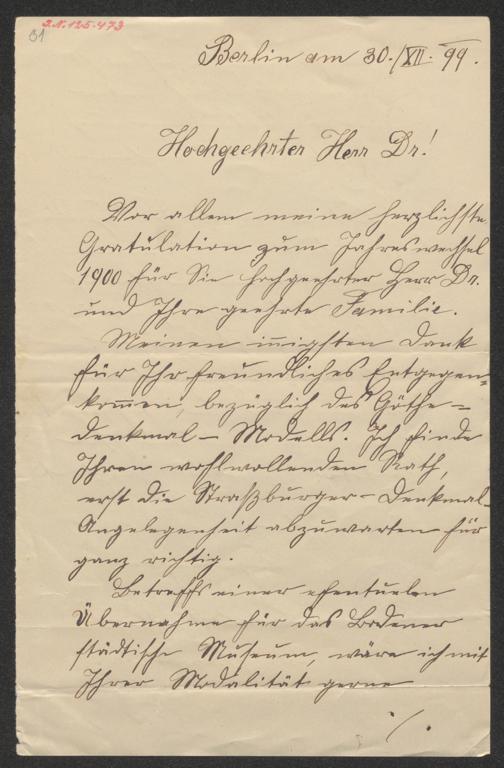 J.N. 125.473
31
Berlin am 30./XII. 99.
Hochgeehrter Herr Dr.!
Vor allem meine herzlichste
Gratulation zum Jahreswechsel
1900 für Sie hochgeehrter Herr Dr.
und Ihre geehrte Familie.
Meinen iñigsten Dank
für Ihr freundliches Entgegen=
kom̄en, bezüglich des Göthe=
denkmal-Modells. Ich finde
Ihren wohlwollenden Rath,
erst die Straßburger-Denkmal-
Angelegenheit abzuwarten für
ganz richtig.
Betreffs einer efentuelen
Übernahme für das
städtische Museum, wäre ich mit
Ihrer Modalität gerne
./.